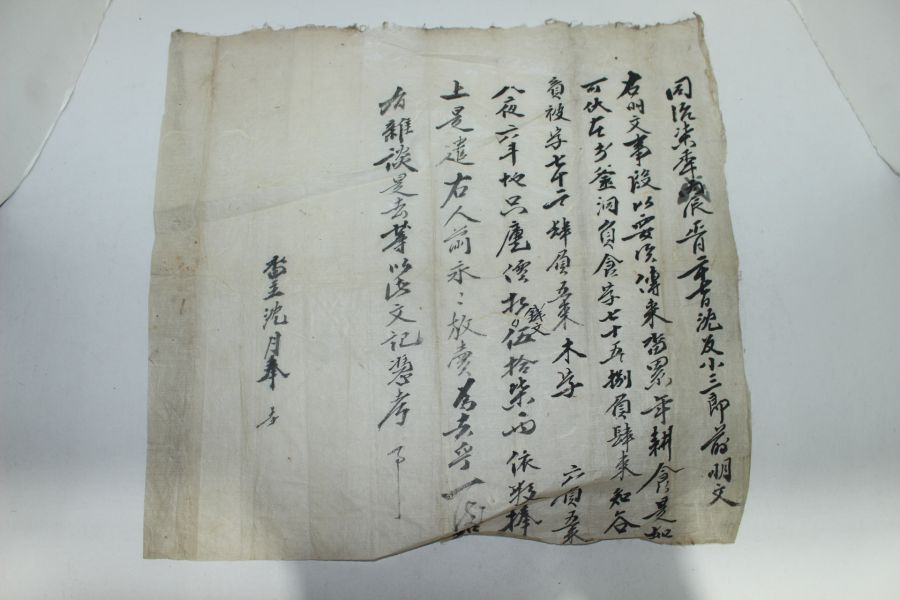 同治柒年戊辰 二月 沈友小三郎前明文
右明文事段以要用傳來畓累年耕食是如
可伏在 釜洞員食字七十五捌負肆束知谷
員被字七十二肆負五束木字 六負五束
八夜六斗地只廛價折錢文伍拾柒兩依數捧
上是遣右人前永〻放賣為去乎一後
有雜談是去等以此文記憑考事
畓主沈月奉